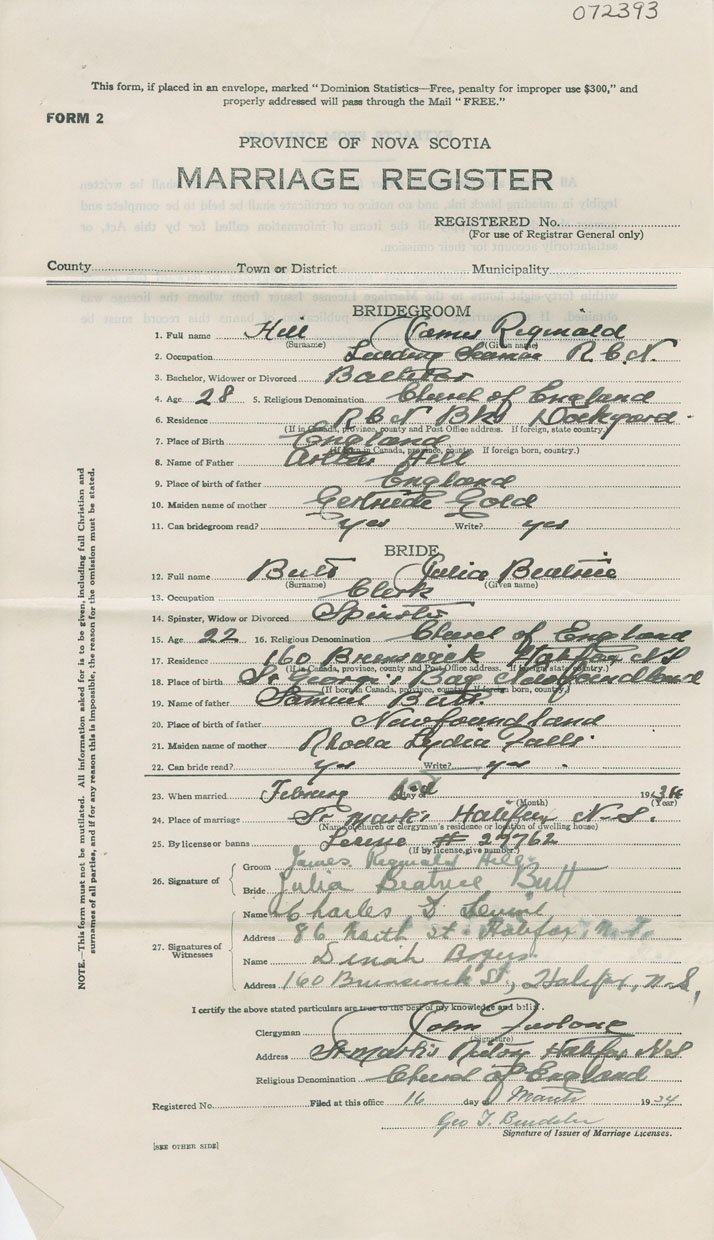 072393
This form, if placed in an envelope, marked "Dominion Statistics—Free, penalty for improper use $300," and
properly addressed will pass through the Mail "FREE."
FORM 2
PROVINCE OF NOVA SCOTIA
MARRIAGE REGISTER
REGISTERED No.
(For use of Registrar General only)
County Town or District Municipality
BRIDEGROOM
1. Full name Hill James Reginald
(Surname) (Given name)
2. Occupation Leading Seaman R.C.N.
3. Bachelor, Widower or Divorced Bachelor
4. Age 28 5. Religious Denomination Church of England
6. Residence R C N Bks Dockyard.
(If in Canada, province, county and Post Office address. If foreign, state country.)
7. Place of Birth England
(If born in Canada, province, county. If foreign born, country.)
8. Name of Father Arthur Hill
9. Place of birth of father England
10. Maiden name of mother Gertrude Gold
11. Can bridegroom read? yes Write? yes
BRIDE
12. Full name Butt Julia Beatrice
(Surname) (Given name)
13. Occupation Clerk
14. Spinster, Widow or Divorced Spinster
15. Age 22 16. Religious Denomination Church of England
17. Residence 160 Brunswick Halifax NS
(If in Canada, province, county and Post Office address. If foreign state country.)
18. Place of birth St George's Bay Newfoundland
(If born in Canada, province, county. If foreign born, country.)
19. Name of father Samuel Butt.
20. Place of birth of father Newfoundland
21. Maiden name of mother Rhoda Lydia Falls
22. Can bride read? yes Write? yes
23. When married day of 19
(Month) (Year)
24. Place of marriage St Mark's Halifax N.S.
(Name of church or clergyman's residence or location of dwelling house)
25. By license or banns License # 29762
(If by license, give number.)
26. Signature of Groom James Reginald Hill
Bride Julia Beatrice Butt
27. Signatures of Witnesses
Name Charles
Address 86 North St. Halifax, N.S.
Name Dinah
Address 160 Brunswick St., Halifax, N.S.
I certify the above stated particulars are true to the best of my knowledge and belief.
Clergyman John Furlong
(Signature)
Address St Mark's Rectory Halifax NS
Religious Denomination Church of England
Registered No. Filed at this office 16 day of March 1934
Geo T.
Signature of Issuer of Marriage Licenses.
[SEE OTHER SIDE]
NOTE.—This form must not be mutilated. All information asked for is to be given, including full Christian and
surnames of all parties, and if for any reason this is impossible, the reason for the omission must be stated.